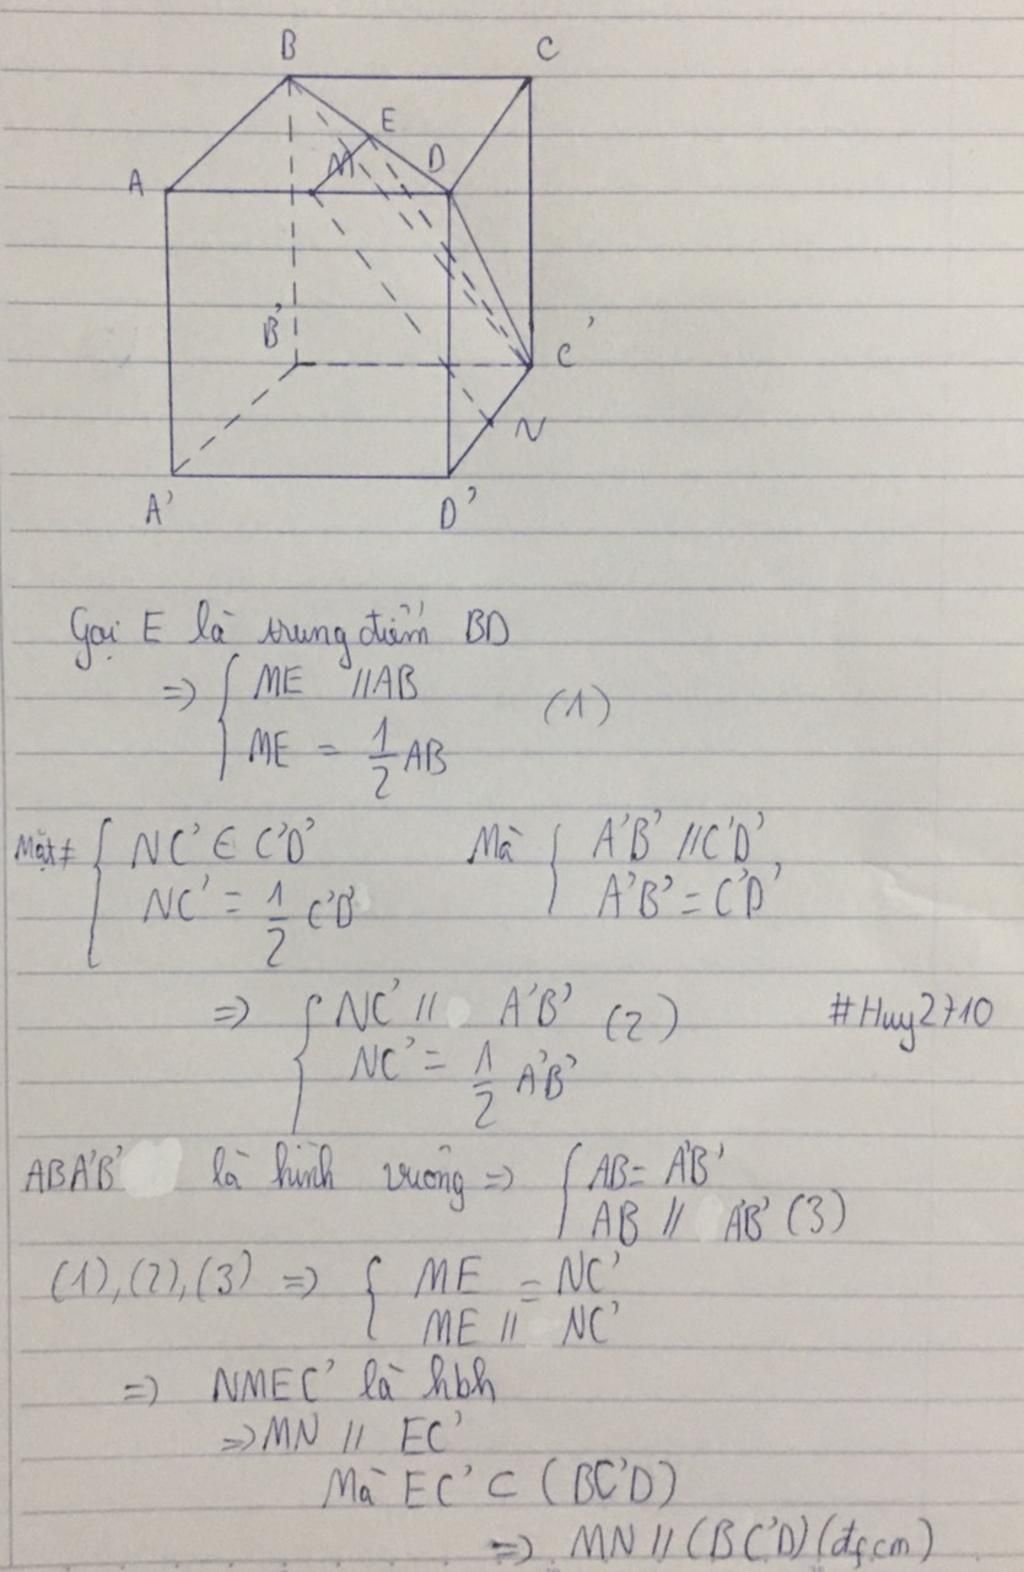 B
C
E
A
M
D
B'
C'
N
A'
D'
Gọi E là trung điểm BD
=> { ME // AB
ME = 1/2 AB (1)
Mặt ≠ { NC' ∈ C'D' Mà { A'B' // C'D',
NC' = 1/2 C'D' A'B' = C'D'
=> { NC' // A'B' (2) #Huy2710
NC' = 1/2 A'B'
ABA'B' là hình vuông => { AB = A'B'
AB // A'B' (3)
(1), (2), (3) => { ME = NC'
ME // NC'
=> NMEC' là hbh
=> MN // EC'
Mà EC' ⊂ (BC'D)
=> MN // (BC'D) (đfcm)